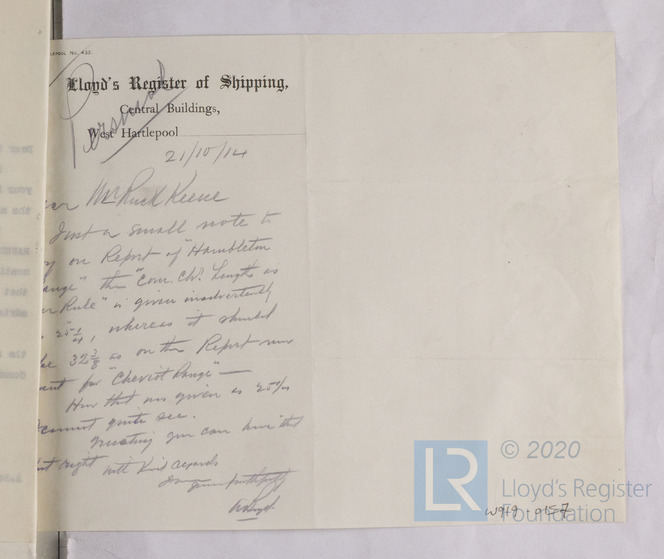 LEPOOL No. 435.
Lloyd's Register of Shipping,
Personal
Central Buildings,
West Hartlepool
21/10/14
Mr Ruck Keene
Just a small note to
on Report of "Hambleton
ange" the "Com. Ch. Length as
er Rule" is given inadvertently
25 1/4, whereas it should
be 32 3/8 as on the Report now
ent for "Cheviot Range" —
How this was given as 25 1/4
cannot quite see.
Trusting you can have this
ut right with kind regards
yours faithfully
© 2020
LR
Lloyd's Register
Foundation
W919 0157